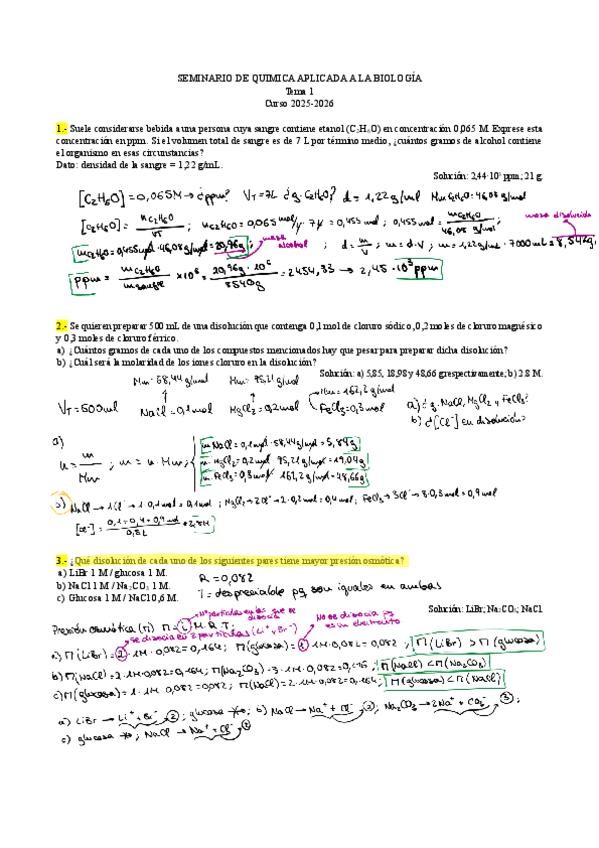 SEMINARIO DE QUIMICA APLICADA A LA BIOLOGÍA
Tema 1
Curso 2025-2026
1.- Suele considerarse bebida a una persona cuya sangre contiene etanol (C₂H₆O) en concentración 0,065 M. Exprese esta
concentración en ppm. Si el volumen total de sangre es de 7 L por término medio, ¿cuántos gramos de alcohol contiene
el organismo en esas circunstancias?
Dato: densidad de la sangre = 1,22 g/mL.
Solución: 2,44·10³ ppm; 21 g.
[C₂H₆O] = 0,065M → ¿ppm? V_T = 7L ¿g C₂H₆O? d = 1,22g/ml Mm C₂H₆O: 46,08 g/mol
masa disolución
[C₂H₆O] = n C₂H₆O / V_T ; n C₂H₆O = 0,065 mol/L · 7L = 0,455 mol ; 0,455 mol = m C₂H₆O / 46,08 g/mol
m C₂H₆O = 0,455 mol · 46,08 g/mol = 20,96g ; masa alcohol ; d = m/V ; m = d·V ; m = 1,22g/ml · 7000 ml = 8,540g
ppm = m C₂H₆O / m sangre × 10⁶ = 20,96g · 10⁶ / 8540g = 2454,33 → 2,45 · 10³ ppm
2.- Se quieren preparar 500 mL de una disolución que contenga 0,1 mol de cloruro sódico, 0,2 moles de cloruro magnésico
y 0,3 moles de cloruro férrico.
a) ¿Cuántos gramos de cada uno de los compuestos mencionados hay que pesar para preparar dicha disolución?
b) ¿Cuál será la molaridad de los iones cloruro en la disolución?
Solución: a) 5,85, 18,98 y 48,66 g respectivamente; b) 2.8 M.
Mm: 58,44 g/mol Mm: 95,21 g/mol Mm = 162,2 g/mol
V_T = 500ml NaCl = 0,1 mol MgCl₂ = 0,2 mol FeCl₃ = 0,3 mol a) ¿g NaCl, MgCl₂ y FeCl₃?
b) ¿[Cl⁻] en disolución?
a)
m NaCl = 0,1 mol · 58,44 g/mol = 5,84g
n = m/Mm ; m = n · Mm ; m MgCl₂ = 0,2 mol · 95,21 g/mol = 19,04g
m FeCl₃ = 0,3 mol · 162,2 g/mol = 48,66g
b) NaCl → 1Cl⁻ → 1·0,1 mol = 0,1 mol ; MgCl₂ → 2Cl⁻ → 2·0,2 mol = 0,4 mol ; FeCl₃ → 3Cl⁻ → 3·0,3 mol = 0,9 mol
[Cl⁻] = 0,1 + 0,4 + 0,9 mol / 0,5L = 2,8M
3.- ¿Qué disolución de cada uno de los siguientes pares tiene mayor presión osmótica?
a) LiBr 1 M / glucosa 1 M. R = 0,082
b) NaCl 1 M / Na₂CO₃ 1 M. T = despreciable pq son iguales en ambas
c) Glucosa 1 M / NaCl 0,6 M.
Solución: LiBr; Na₂CO₃; NaCl
Nº partículas en las que se disocia
Presión osmótica (π) π = i · M · R · T ; No se disocia pq es un
se disocia en 2 partículas (Li⁺ y Br⁻)
a) π(LiBr) = 2 · 1M · 0,082 = 0,164 ; π(glucosa) = 1 · 1M · 0,082 = 0,082 ; π(LiBr) > π(glucosa)
b) π(NaCl) = 2 · 1M · 0,082 = 0,164 ; π(Na₂CO₃) = 3 · 1M · 0,082 = ; π(NaCl) < π(Na₂CO₃)
c) π(glucosa) = 1 · 1M · 0,082 = 0,082 ; π(NaCl) = 2 · 1M · 0,082 = 0,164 ; π(glucosa) < π(NaCl)
a) LiBr → Li⁺ + Br⁻ 2 ; glucosa ; b) NaCl → Na⁺ + Cl⁻ 2 ; Na₂CO₃ → 2Na⁺ + CO₃ 3 ;
c) glucosa ; NaCl → Na⁺ + Cl⁻ 2